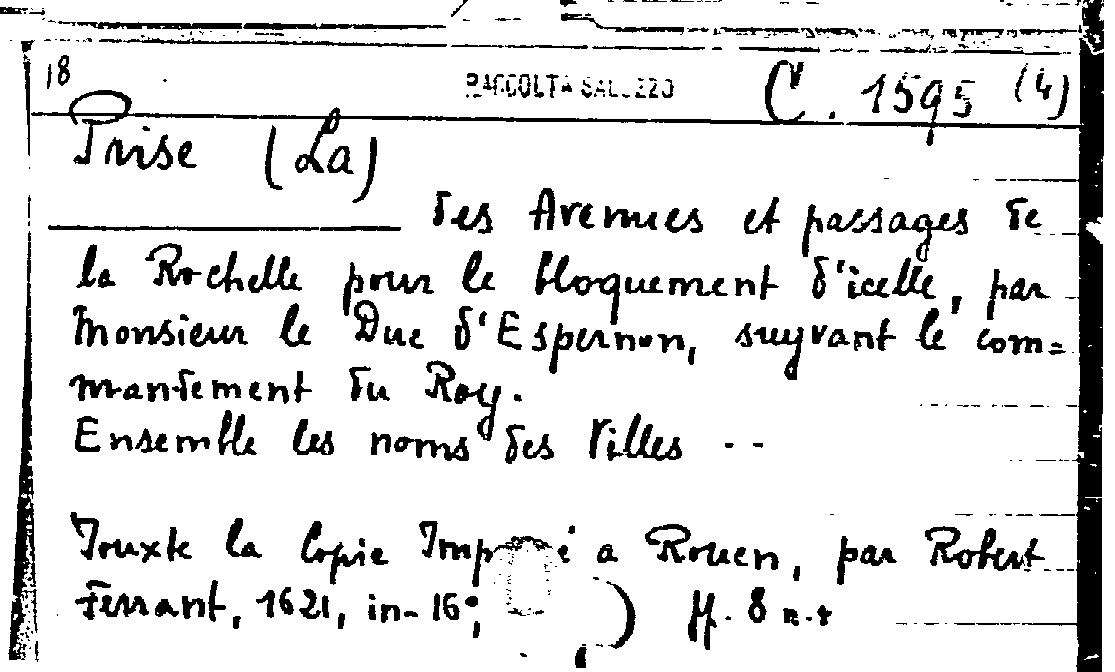 18 RACCOLTA SALUZZO C. 1595 (4)
Prise (La)
des Avenues et passages de
la Rochelle pour le bloquement d'icelle, par
Monsieur le Duc d'Espernon, suyvant le com=
mandement du Roy.
Ensemble les noms des Villes --
Jouxte la Copie a Rouen, par Robert
Ferrant, 1621, in-16°; ) ff. 8 n.t